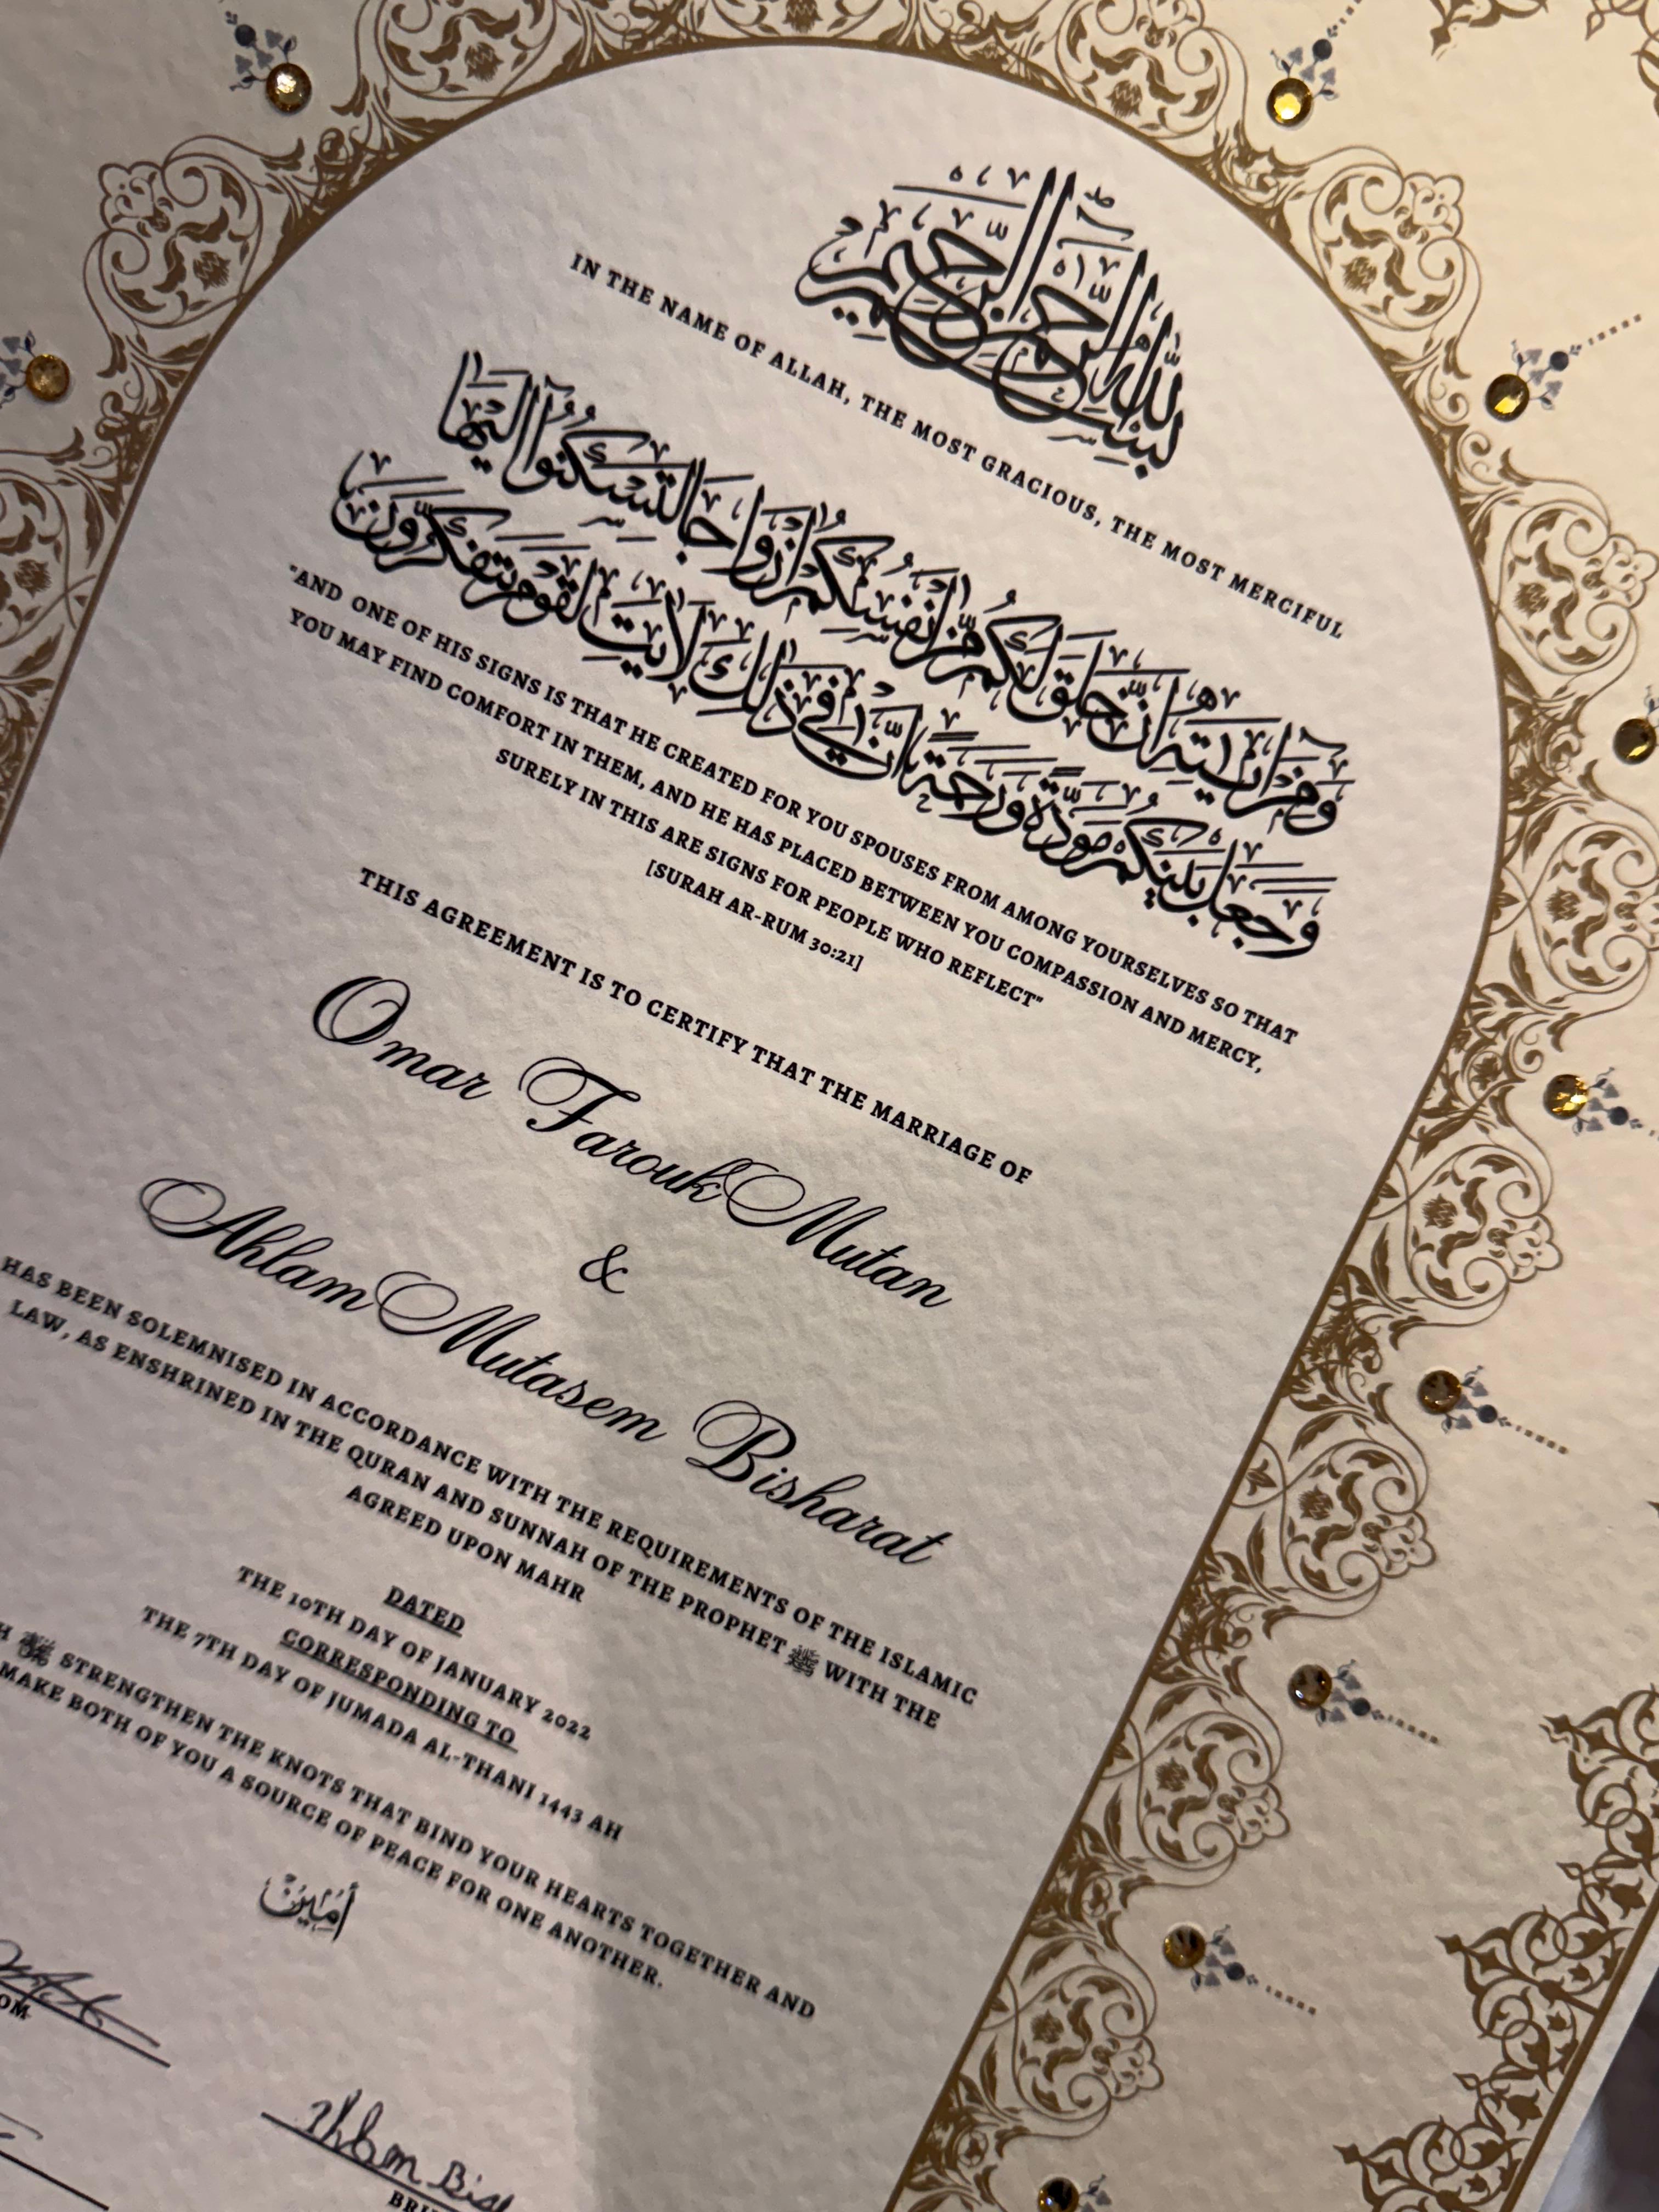 بِسْمِ اللَّهِ الرَّحْمَٰنِ الرَّحِيمِ
IN THE NAME OF ALLAH, THE MOST GRACIOUS, THE MOST MERCIFUL
وَمِنْ آيَاتِهِ أَنْ خَلَقَ لَكُم مِّنْ أَنفُسِكُمْ أَزْوَاجًا لِّتَسْكُنُوا إِلَيْهَا
وَجَعَلَ بَيْنَكُم مَّوَدَّةً وَرَحْمَةً إِنَّ فِي ذَٰلِكَ لَآيَاتٍ لِّقَوْمٍ يَتَفَكَّرُونَ
"AND ONE OF HIS SIGNS IS THAT HE CREATED FOR YOU SPOUSES FROM AMONG YOURSELVES SO THAT
YOU MAY FIND COMFORT IN THEM, AND HE HAS PLACED BETWEEN YOU COMPASSION AND MERCY,
SURELY IN THIS ARE SIGNS FOR PEOPLE WHO REFLECT"
[SURAH AR-RUM 30:21]
THIS AGREEMENT IS TO CERTIFY THAT THE MARRIAGE OF
Omar Farouk Mutan
&
Ahlam Mutasem Bisharat
HAS BEEN SOLEMNISED IN ACCORDANCE WITH THE REQUIREMENTS OF THE ISLAMIC
LAW, AS ENSHRINED IN THE QURAN AND SUNNAH OF THE PROPHET ﷺ WITH THE
AGREED UPON MAHR
DATED
THE 10TH DAY OF JANUARY 2022
CORRESPONDING TO
THE 7TH DAY OF JUMADA AL-THANI 1443 AH
STRENGTHEN THE KNOTS THAT BIND YOUR HEARTS TOGETHER AND
MAKE BOTH OF YOU A SOURCE OF PEACE FOR ONE ANOTHER.
أٰمِيْن